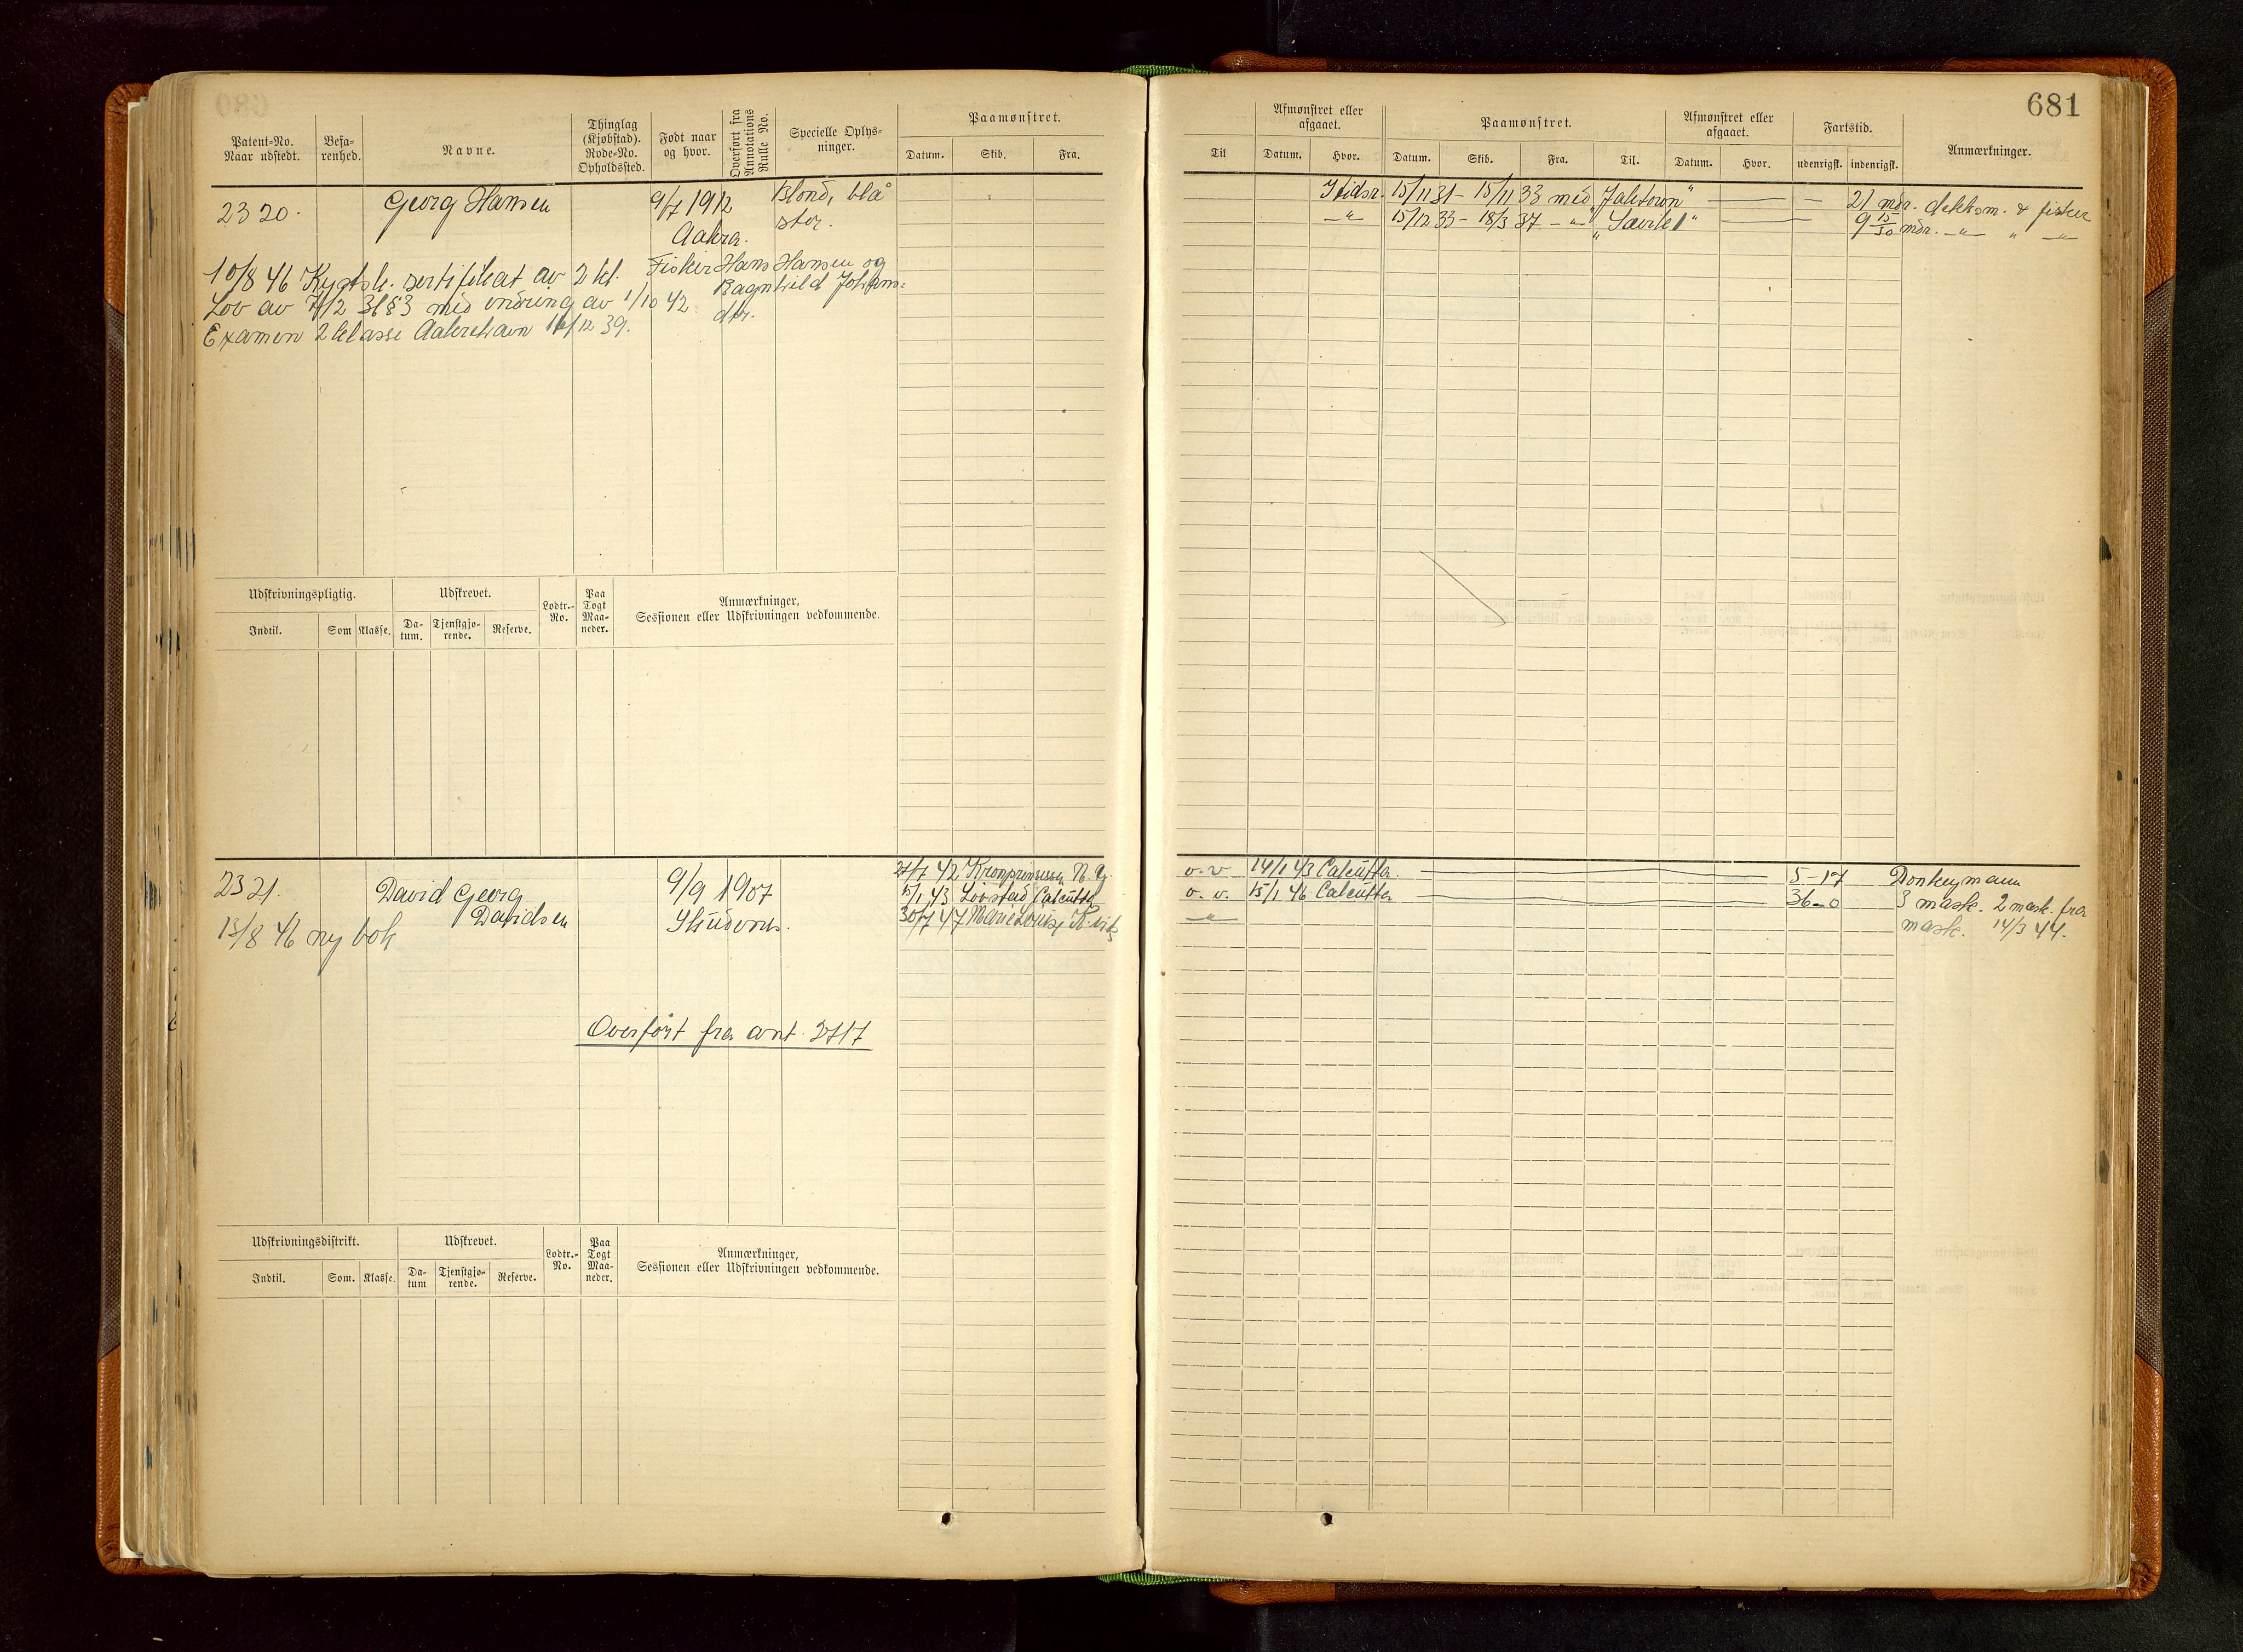 681
Patent-No.
Naar udstedt.
Befa-
renhed.
Navne.
Thinglag
(Kjøbstad).
Rode-No.
Opholdssted.
Født naar
og hvor.
Overført fra
Annotations
Rulle No.
Specielle Oplys-
ninger.
Paamønstret.
Datum. Skib. Fra.
Til
Afmønstret eller
afgaaet.
Datum. Hvor.
Paamønstret.
Datum. Skib. Fra. Til.
Afmønstret eller
afgaaet.
Datum. Hvor.
Fartstid.
udenrigsk. indenrigsk.
Anmærkninger.
2320. Georg Hansen 9/7 1912 Blond, blå
Aakra. stor.
Fisker Hans Hansen og
Ragnhild Johans-
dtr.
10/8 46 Kystsk. sertifikat av 2 kl.
Lov av 7/2 36 § 3 med endring av 1/10 42
Examen 2 klasse Aakrehavn 16/12 39.
15/11 31 - 15/11 33 med 21 mdr. dekksm. & fisker
-"- 15/12 33 - 18/3 37 -"- 9 15/30 mdr. -"- " -"-
Udskrivningspligtig.
Indtil. Som Klasse.
Udskrevet.
Da-
tum. Tjenstgjø-
rende. Reserve.
Lodtr.-
No.
Paa
Togt
Maa-
neder.
Anmærkninger,
Sessionen eller Udskrivningen vedkommende.
2321. David Georg
Davidsen 9/9 1907
Skudenes.
13/8 46 ny bok
Overført fra ant. 2717
27/7 42 Kronprinsessen N.Y. v.v 14/1 43 Calcutta. 5-17 Donkeymann
15/1 43 Lovstad Calcutta v.v. 15/1 46 Calcutta 36-0 3 mask. 2 mask. fra
30/7 47 Marie Louise -"- mask. 14/3 44.
Udskrivningsdistrikt.
Indtil. Som. Klasse.
Udskrevet.
Da-
tum Tjenstgjø-
rende. Reserve.
Lodtr.-
No.
Paa
Togt
Maa-
neder.
Anmærkninger,
Sessionen eller Udskrivningen vedkommende.